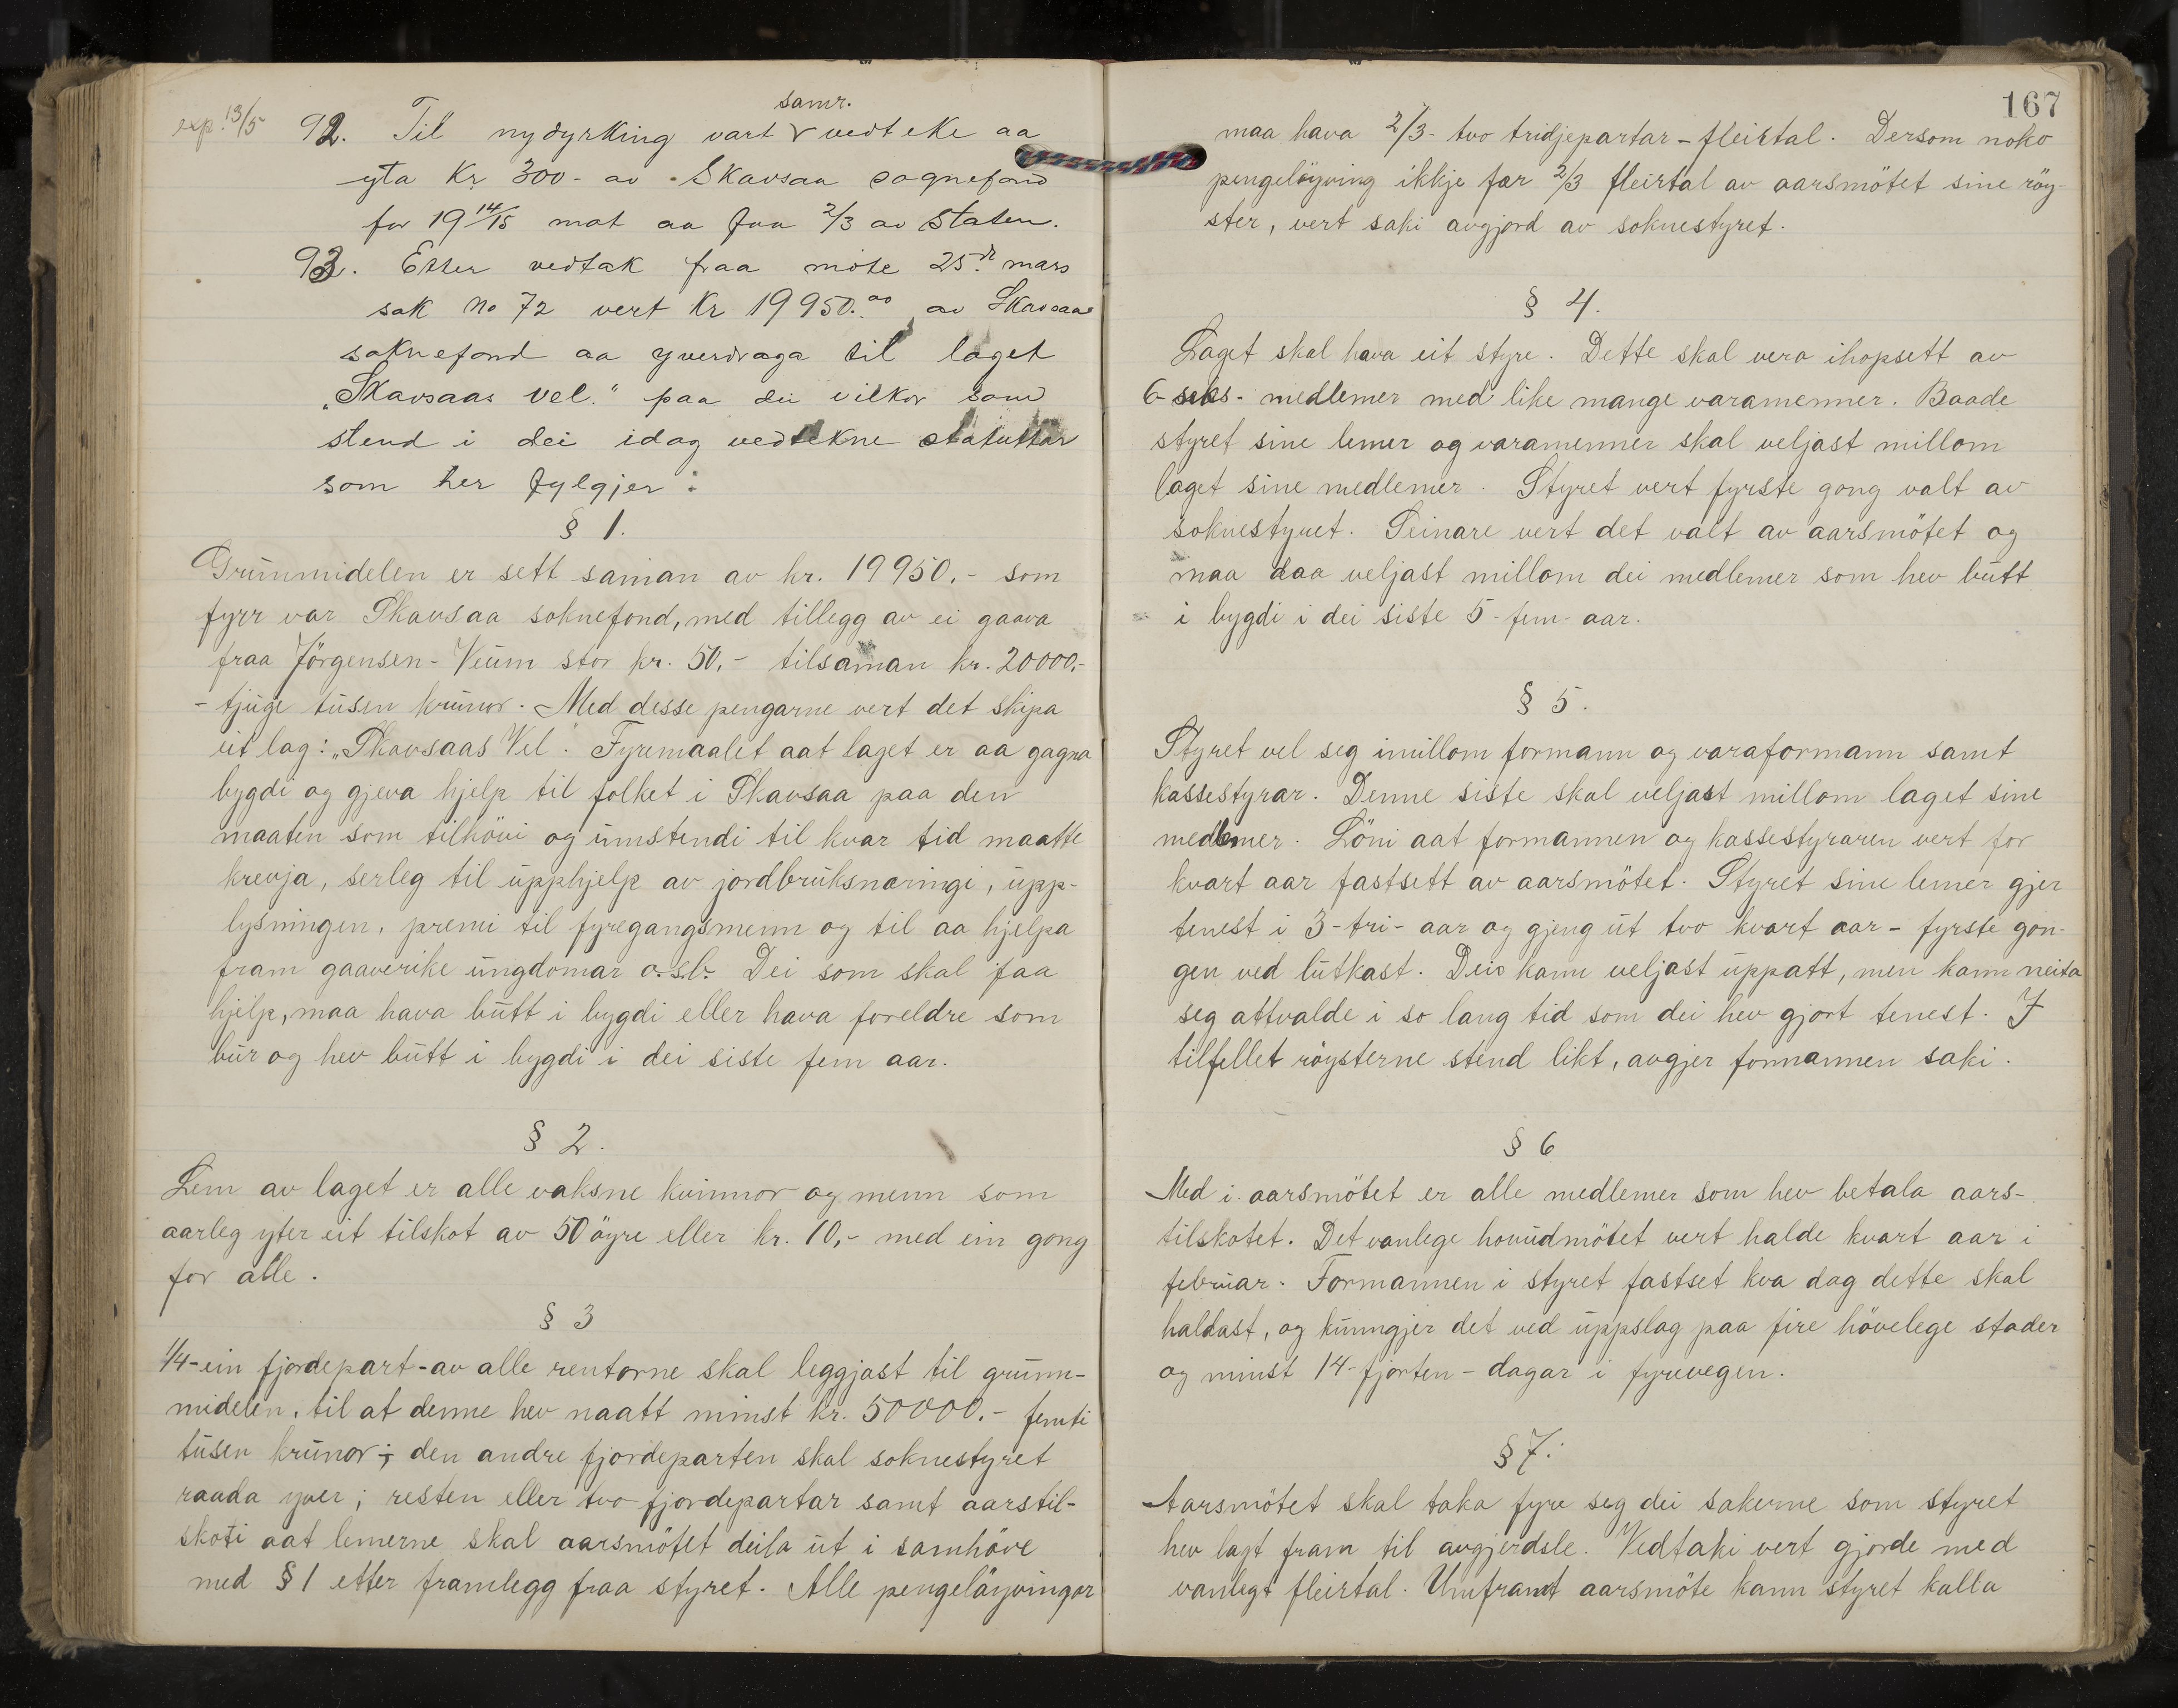 exp. 13/5
92. Til nydyrking vart samr. vedteke aa
yta Kr 300- av Skavsaa sognefond
for 19 14/15 mot aa faa 2/3 av Staten.
93. Etter vedtak fraa møte 25de mars
sak No 72 vert Kr 19950.00 av Skavsaa
soknefond aa yverdraga til laget
"Skavsaas Vel." paa dei vilkor som
stend i dei idag vedtekne statuttar
som her fylgjer:
§ 1.
Grunnmidelen er sett saman av kr. 19950.- som
fyrr var Skavsaa soknefond, med tillegg av ei gaava
fraa Jörgensen-Veum stor kr. 50.- tilsaman kr. 20000.-
- tjuge tusen krunor. Med desse pengarne vert det skipa
eit lag: "Skavsaas Vel. Fyremaalet aat laget er aa gagna
bygdi og gjeva hjelp til folket i Skavsaa paa den
maaten som tilhövi og umstendi til kvar tid maatte
krevja, serleg til upphjelp av jordbruksnæringi, upp-
lysningen, premi til fyregangsmenn og til aa hjelpa
fram gaaverike ungdomar o.sb. Dei som skal faa
hjelp, maa hava butt i bygdi eller hava foreldre som
bur og hev butt i bygdi i dei siste fem aar.
§ 2.
Lem av laget er alle vaksne kvinnor og menn som
aarleg yter eit tilskot av 50 öyre eller kr. 10,- med ein gong
for alle.
§ 3
1/4-ein fjordepart-av alle rentorne skal leggjast til grunn-
midelen, til at denne hev naatt minst kr. 50000.- femti
tusen krunor-; den andre fjordeparten skal soknestyret
raada yver; resten eller tvo fjordepartar samt aarstil-
skoti aat lemerne skal aarsmötet deila ut i samhöve
med § 1 etter framlegg fraa styret. Alle pengelöyvingar
167
maa hava 2/3- tvo tridjepartar - fleirtal. Dersom noko
pengelöyving ikkje fær 2/3 fleirtal av aarsmötet sine röy-
ster, vert saki avgjord av soknestyret.
§ 4.
Laget skal hava eit styre. Dette skal vera ihopsett av
6- seks- medlemer med like mange varamenner. Baade
styret sine lemer og varamenner skal veljast millom
laget sine medlemer. Styret vert fyrste gong valt av
soknestyret. Seinare vert det valt av aarsmötet og
maa daa veljast millom dei medlemer som hev butt
i bygdi i dei siste 5-fem-aar.
§ 5.
Styret vel seg imillom formann og varaformann samt
kassestyrar. Denne siste skal veljast millom laget sine
medlemer. Löni aat formannen og kassestyraren vert for
kvart aar fastsett av aarsmötet. Styret sine lemer gjer
tenest i 3-tri-aar og gjeng ut tvo kvart aar - fyrste gon-
gen ved lutkast. Dei kann veljast uppatt, men kann neita
seg attvalde i so lang tid som dei hev gjort tenest. I
tilfellet röysterne stend likt, avgjer formannen saki.
§ 6
Med i aarsmötet er alle medlemer som hev betala aars-
tilskotet. Det vanlege hovudmötet vert halde kvart aar i
februar. Formannen i styret fastset kva dag dette skal
haldast, og kunngjer det ved uppslag paa fire hövelege stader
og minst 14-fjorten - dagar i fyrevegen.
§ 7.
Aarsmötet skal taka fyre seg dei sakerne som styret
hev lagt fram til avgjerdsle. Vedtaki vert gjorde med
vanlegt fleirtal. Umframt aarsmöte kann styret kalla